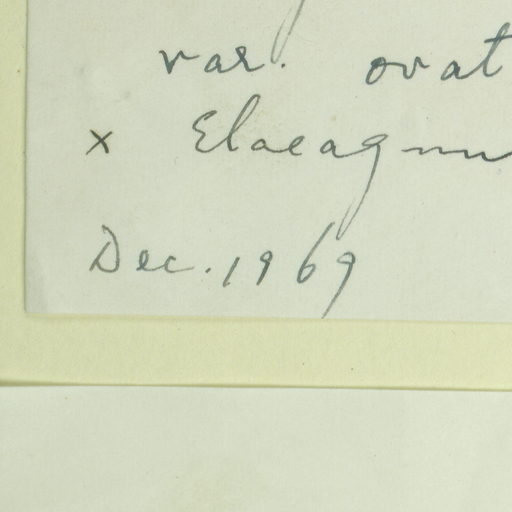 var. ovat
x Elaeagnu
Dec. 1969